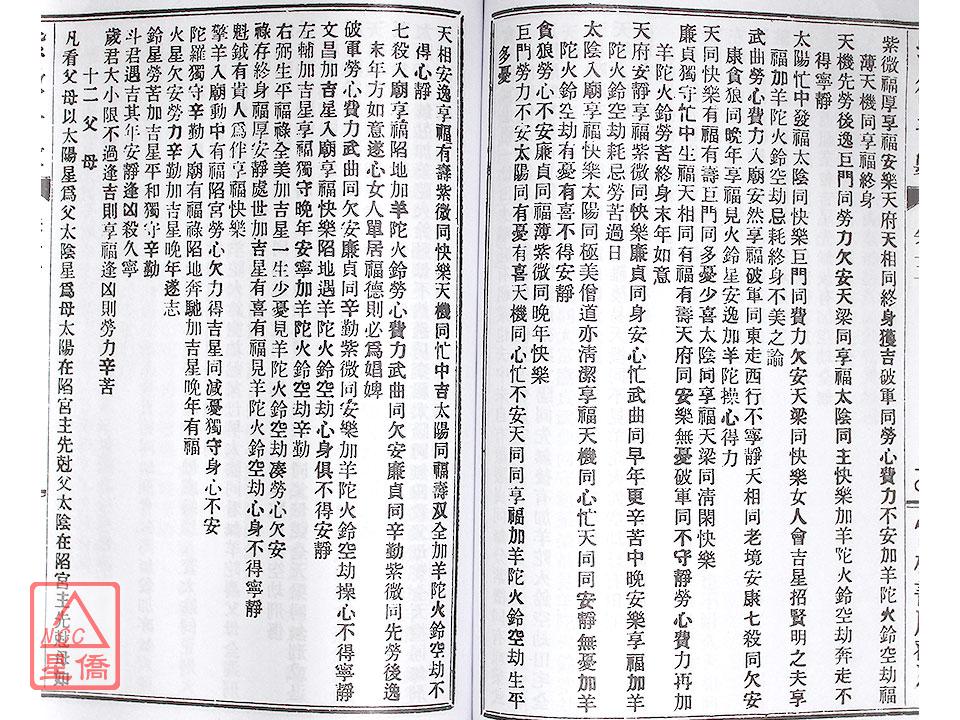 紫微福厚享福安樂天府天相同終身獲吉破軍同勞心費力不安加羊陀火鈴空劫福
薄天機同享福終身
天機先勞後逸巨門同勞力欠安天梁同享福太陰同主快樂加羊陀火鈴空劫奔走不
得寧靜
太陽忙中發福太陰同快樂巨門同費力欠安天梁同快樂女人會吉星招賢明之夫享
福加羊陀火鈴空劫忌耗終身不美之論
武曲勞心費力入廟安然享福破軍同東走西行不寧靜天相同老境安康七殺同欠安
康貪狼同晚年享福見火鈴星安逸加羊陀操心得力
天同快樂有福有壽巨門同多憂少喜太陰同享福天梁同清閑快樂
廉貞獨守忙中生福天相同有福有壽天府同安樂無憂破軍同不守靜勞心費力再加
羊陀火鈴勞苦終身末年如意
天府安靜享福紫微同快樂廉貞同身安心忙武曲同早年更辛苦中晚安樂享福加羊
陀火鈴空劫耗忌勞苦過日
太陰入廟享福快樂太陽同極美僧道亦清潔享福天機同心忙天同同安靜無憂加羊
陀火鈴空劫有憂有喜不得安靜
貪狼勞心不安廉貞同福薄紫微同晚年快樂
巨門勞力不安太陽同有憂有喜天機同心忙不安天同同享福加羊陀火鈴空劫生平
多憂
天相安逸享福有壽紫微同快樂天機同忙中吉太陽同福壽双全加羊陀火鈴空劫不
得心靜
七殺入廟享福陷地加羊陀火鈴勞心費力武曲同欠安廉貞同辛勤紫微同先勞後逸
末年方如意遂心女人單居福德則必為娼婢
破軍勞心費力武曲同欠安廉貞同辛勤紫微同安樂加羊陀火鈴空劫操心不得寧靜
文昌加吉星入廟享福快樂陷地遇羊陀火鈴空劫心身俱不得安靜
左輔加吉星享福獨守晚年安寧加羊陀火鈴空劫辛勤
右弼生平福祿全美加吉星一生少憂見羊陀火鈴空劫湊勞心欠安
祿存終身福厚安靜處世加吉星有喜有福見羊陀火鈴空劫心身不得寧靜
魁鉞有貴人為伴享福快樂
擎羊入廟動中有福陷宮勞心欠力得吉星同減憂獨守身心不安
陀羅獨守辛勤入廟有福祿陷地奔馳加吉星晚年有福
火星欠安勞力辛勤加吉星晚年遂志
鈴星勞苦加吉星平和獨守辛勤
斗君遇吉其年安靜逢凶殺久寧
歲君大小限不過逢吉則享福逢凶則勞力辛苦
十二父母
凡看父母以太陽星為父太陰星為母太陽在陷宮主先尅父太陰在陷宮主先尅母
NCC
星僑